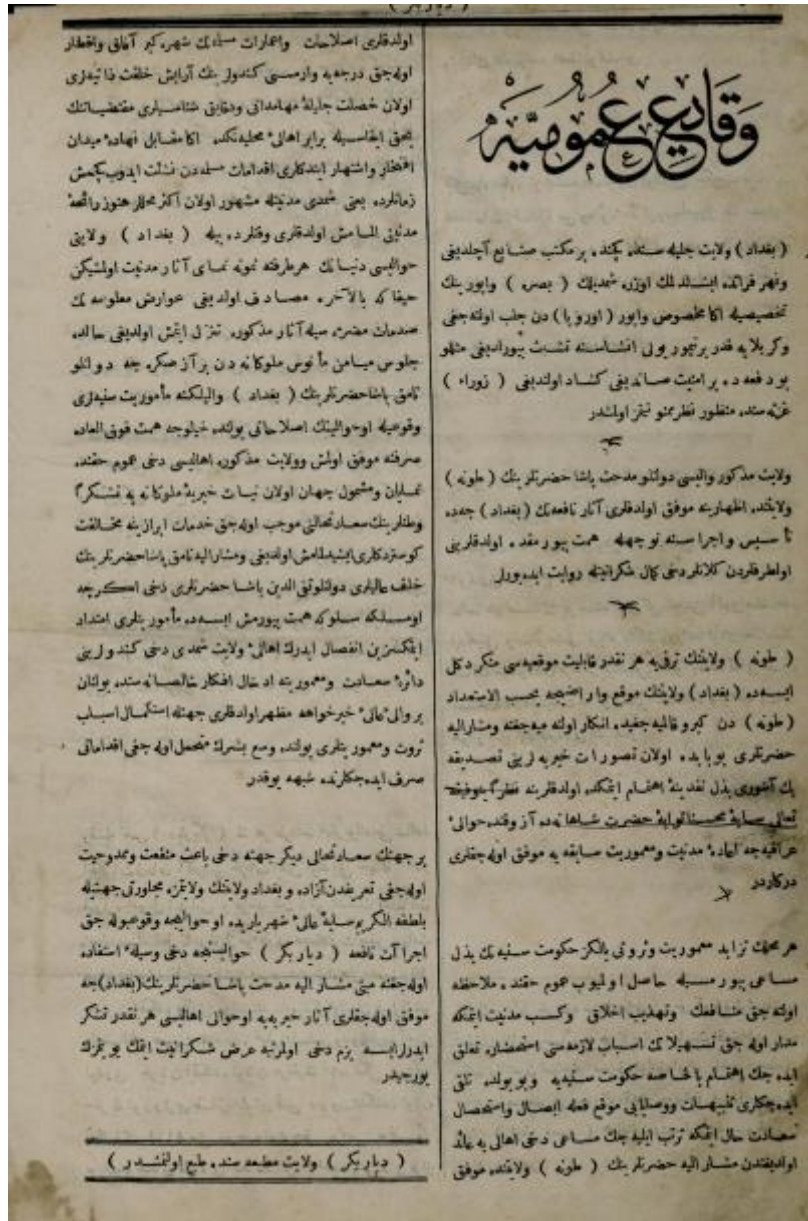 ( دیاربکر )
وقایع عمومیه
( بغداد ) ولایت جلیله سنده بر مکتب صنایع آچلدیغی
ونهر فراتده ایشلدلمك اوزره شمدیلك ( بصره ) واپورینك
تخصیصیله اکا مخصوص واپور ( اوروپا ) دن جلب اولنه جغی
وکربلایه قدر برتیمور یولی انشاسنه تشبث بیورلدیغی مثللو
بو دفعه ده بر امنیت صاندیغی کشاد اولندیغی ( زوراء )
غزته سنده منظور نظر ممنونیتمز اولمشدر
ولایت مذکور والیسی دولتلو مدحت پاشا حضرتلرینك ( طونه )
ولایتنده اظهارینه موفق اولدقلری آثار نافعه نك ( بغداد ) جه ده
تأسیس واجراسنه توجهله همت بیورمقده اولدقلرینی
اولطرفلردن کلانلر دخی کمال شکرانیتله روایت ایدیورلر
( طونه ) ولایتنك ترقی یه هر نقدر قابلیت موقعیه سی منکر دکل
ایسه ده ( بغداد ) ولایتنك موقع واراضیجه بحسب الاستعداد
( طونه ) دن کیرو قالمیه جغیده انکار اولنه میه جغنه ومشارالیه
حضرتلری بو بابده اولان تصورات خیریه لرینی تصدیقه
پك آشوری بذل نقدینهٔ اهتمام ایتمکده اولدقلرینه نظراً بتوفیقه
تعالی سایهٔ محسناتوایهٔ حضرت شاهانه ده آز وقتده حوالیٔ
عراقیه جه اعادهٔ مدنیت ومعموریت سابقه یه موفق اوله جقلری
درکاردر
هر محلك تزاید معموریت وثروتی یالکز حکومت سنیه نك بذل
مساعی بیورمسیله حاصل اولیوب عموم حقنده ملاحظه
اولنه جق منافعك وتهذیب اخلاق وکسب مدنیت ایتمکه
مدار اوله جق تسهیلاتك اسباب لازمه سنی استحضاره تعلق
ایده جك اهتمام بالخاصه حکومت سنیه یه وبو یولده تلقی
ایده جکلری تنبیهات ووصایایی موقع فعله ایصال واستحصال
سعادت حال ایتمکه ترتب ایلیه جك مساعی دخی اهالی یه عائد
اولدیغندن مشار الیه حضرتلرینك ( طونه ) ولایتنده موفق
اولدقلری اصلاحات واعمارات مسلمه نك شهرکیر آفاق واقطار
اوله جق درجه یه وارمسی کندولرینك آرایش خلقت ذاتیه لری
اولان خصلت جلیلهٔ مهامدانی ودقایق شناسیلری مقتضیاتنك
بحق ایفاسیله برابر اهالیٔ محلیه نکده اکا مقابل نهادهٔ میدان
افتخار واشتهار ایتدکلری اقدامات مسلمه دن نشئت ایدوب کچمش
زمانلرده یعنی شمدی مدنیتله مشهور اولان اکثر محللر هنوز رائحهٔ
مدنیتی المامش اولدقلری وقتلرده بیله ( بغداد ) ولایتی
حوالیسی دنیانك هر طرفنه نمونه نمای آثار مدنیت اولمشیکن
حیفا که بالآخره مصادف اولدیغی عوارض معلومه نك
صدمات مضره سیله آثار مذکوره تنزل ایتمش اولدیغی حالده
جلوس میامن مأنوس ملوکانه دن برآز صکره جه دولتلو
نامق پاشا حضرتلرینك ( بغداد ) والیلکنه مأموریت سنیه لری
وقوعیله اوحوالینك اصلاحاتی یولنده خیلوجه همت فوق العاده
صرفنه موفق اولمش وولایت مذکوره اهالیسی دخی عموم حقنده
نمایان ومشمول جهان اولان نیات خیریهٔ ملوکانه یه تشکراً
وطنلرینك سعادتحالنی موجب اوله جق خدمات ابرازینه مخالفت
کوستردکلری ایشیدلمامش اولدیغی ومشارالیه نامق پاشا حضرتلرینك
خلف عالیلری دولتلو تقی الدین پاشا حضرتلری دخی اکرچه
اومسلکه سلوکه همت بیورمش ایسه ده مأموریتلری امتداد
ایتمکسزین انفصال ایدرك اهالیٔ ولایت شمدی دخی کندولرینی
دائرهٔ سعادت ومعموریته ادخال افکار خالصانه سنده بولنان
بر والیٔ عالیٔ خیرخواهه مظهر اولدقلری جهتله استکمال اسباب
ثروت ومعموریتلری یولنده وسع بشرك متحمل اوله جغی اقداماتی
صرف ایده جکلرنده شبهه یوقدر
بر جهتك سعادتحالی دیکر جهته دخی باعث منفعت وممدوحیت
اوله جغی تعریفدن آزاده وبغداد ولایتنك ولایتمزه مجاورتی جهتیله
بلطفه الکریم سایهٔ عالیٔ شهریاریده اوحوالیجه وقوعبوله جق
اجراآت نافعه ( دیاربکر ) حوالیسنجه دخی وسیلهٔ استفاده
اوله جغنه مبنی مشار الیه مدحت پاشا حضرتلرینك (بغداد)جه
موفق اوله جقلری آثار خیریه یه اوحوالی اهالیسی هر نقدر تشکر
ایدرلر ایسه بزم دخی اولمرتبه عرض شکرانیت ایتمك بوینمزك
بورجیدر
( دیاربکر ) ولایت مطبعه سنده طبع اولنمشدر )